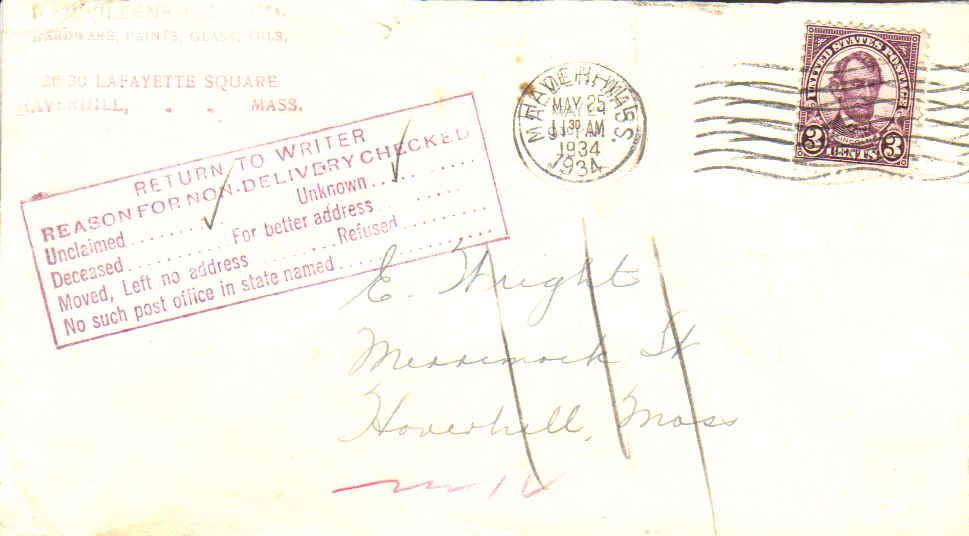 HARDWARE, PAINTS, GLASS, OILS,
LAFAYETTE SQUARE
HAVERHILL, MASS.
HAVERHILL MASS.
MAY 25
11 30 AM
1934
1934
UNITED STATES POSTAGE
3 CENTS 3
RETURN TO WRITER
REASON FOR NON-DELIVERY CHECKED
Unclaimed.......... Unknown..........
Deceased.......... For better address..........
Moved, Left no address.......... Refused..........
No such post office in state named..........
E. Wright
Merrimack St
Haverhill, Mass